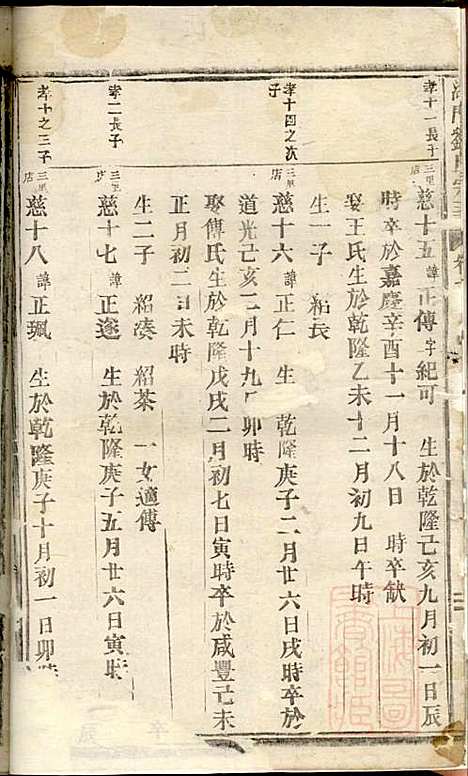 孝十一長子
三里店
慈十五 諱正傳字紀可 生於乾隆己亥九月初一日辰
時卒於嘉慶辛酉十一月十八日 時卒缺
娶王氏生於乾隆乙未十二月初九日午時
生一子 紹長
孝十四之次子
三里店
慈十六 諱正仁 生 乾隆庚子二月廿六日戌時卒於
道光己亥二月十九日卯時
娶傅氏生於乾隆戊戌二月初七日寅時卒於咸豐己未
正月初二日未時
生二子 紹湊 紹茶 一女適傅
孝二長子
三里店
慈十七 諱正逐 生於乾隆庚子五月廿六日寅時
孝十之三子
三里店
慈十八 諱正珮 生於乾隆庚子十月初一日卯時